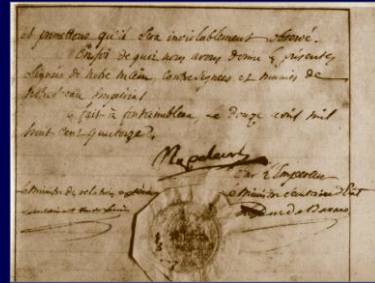 et promettons qu'il sera inviolablement observé.
En foi de quoi nous avons donné les présentes
signées de notre main, contresignées et munies de
notre sceau impérial
fait à fontainebleau, le douze avril mil
huit cent quatorze.
Napoleon
Par l'Empereur
Le Ministre des relations
Le Ministre Secrétaire d'Etat
Le Duc de Bassano